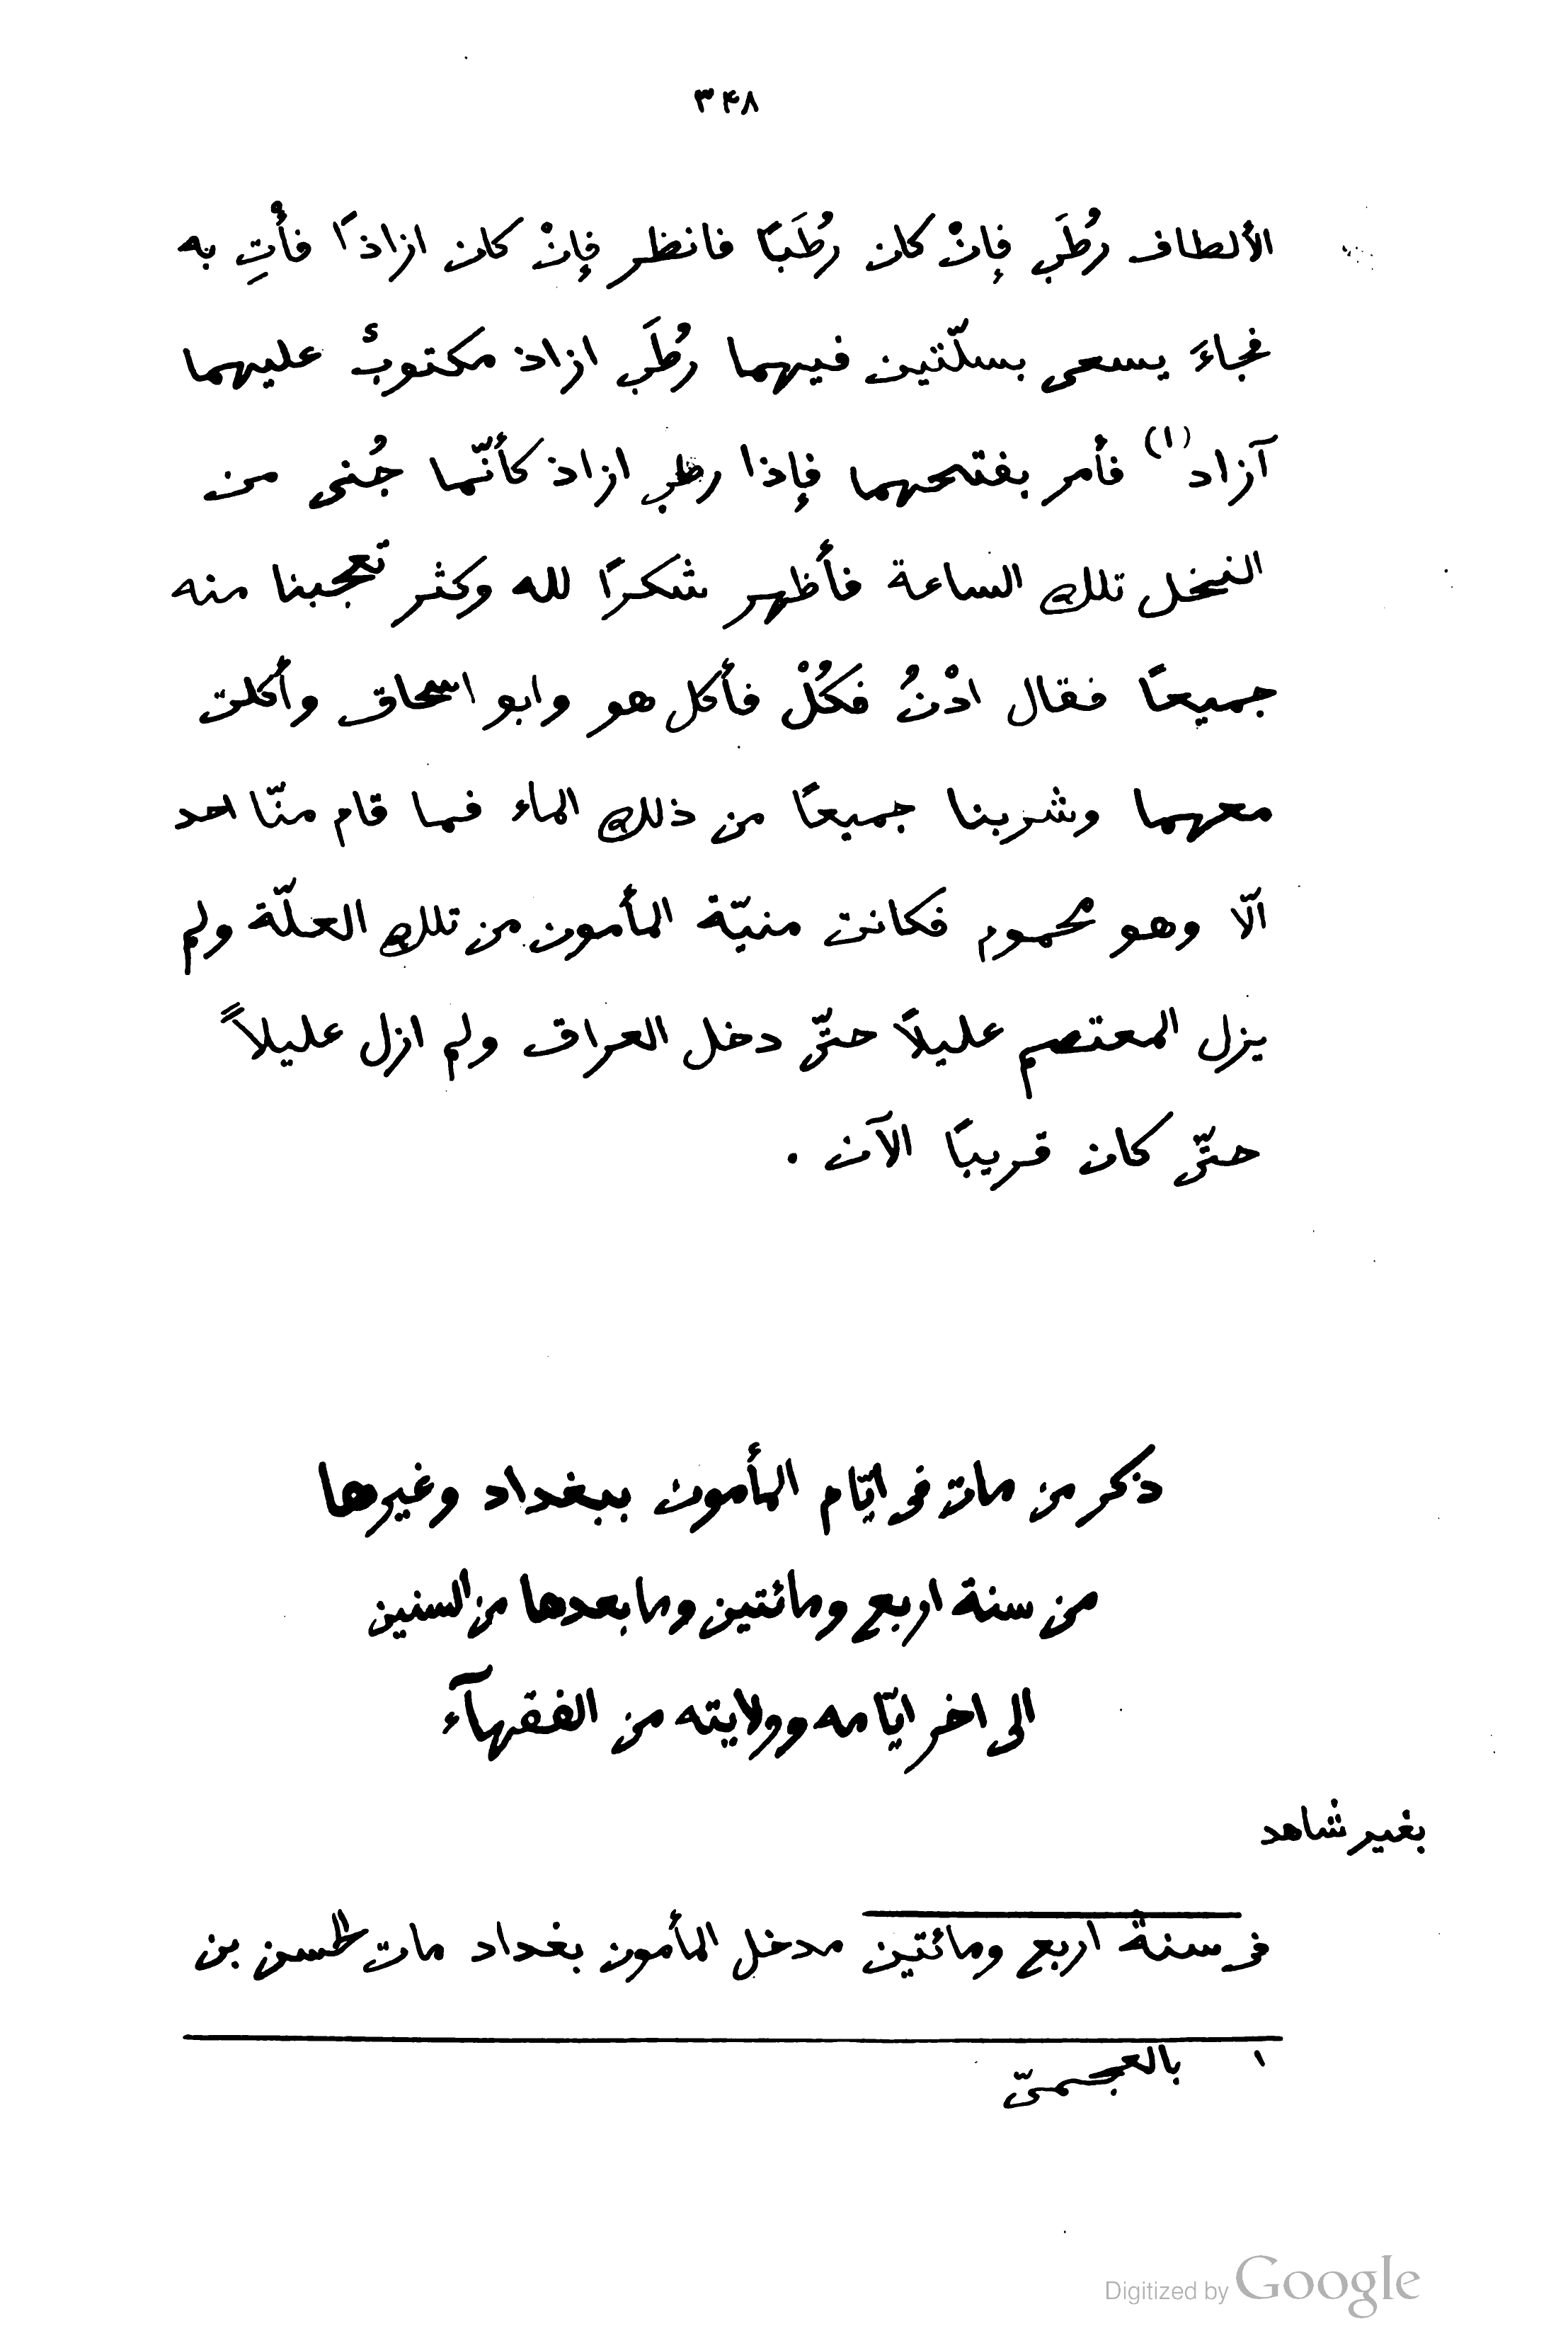 ٣٤٨
الألطاف رُطَب فإنْ كان رُطَبًا فانظر فإنْ كان ازاذًا فأْتِ به
فجاءَ يسعى بسلّتين فيهما رُطَب ازاذ مكتوبٌ عليهما
آزاد (١) فأمر بفتحهما فإذا رطب ازاذ كأنّما جُنى من
النخل تلك الساعة فأظهر شكرًا لله وكثر تعجبنا منه
جميعًا فقال ادْنُ فكُلْ فأكل هو وابو اسحاق وأكلت
معهما وشربنا جميعًا من ذلك الماء فما قام منّا احد
الّا وهو محموم فكانت منيّة المأمون من تلك العلّة ولم
يزل المعتصم عليلًا حتّى دخل العراق ولم ازل عليلاً
حتّى كان قريبًا الآن .
ذكر من مات فى ايّام المأمون ببغداد وغيرها
من سنة اربع ومائتين وما بعدها من السنين
الى اخر ايّامه وولايته من الفقهآء
بغير شاهد
فى سنة اربع ومائتين مدخل المأمون بغداد مات الحسن بن
١ بالعجمىّ
Digitized by Google